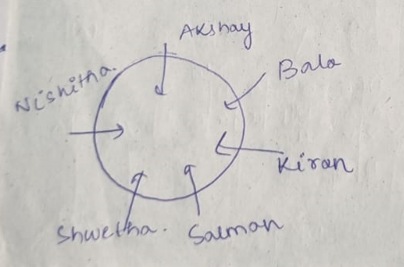 Akshay
Bala
Nishitha.
Kiran
Shwetha.
Salman